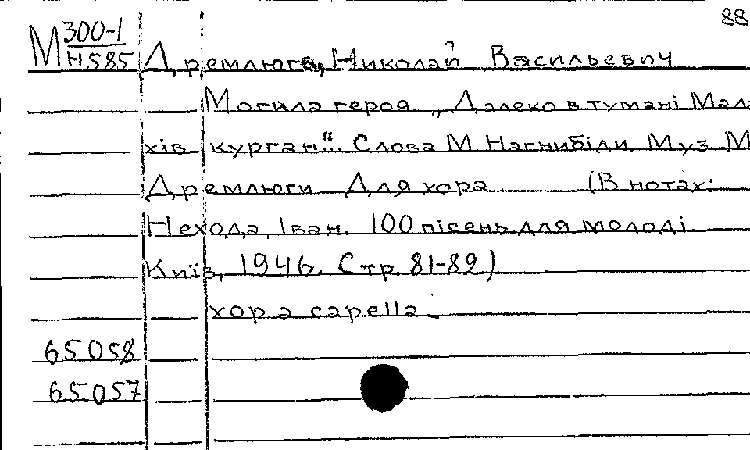 88
М 300-1
Н585
Дремлюга, Николай Васильевич
Могила героя „Далеко в тумані Мала
хів курган". Слова М. Нагнибіди. Муз. М.
Дремлюги Для хора (В нотах:
Нехода, Іван. 100 пісень для молоді
Київ, 1946. Стр. 81-89)
хор a capella.
65058
65057